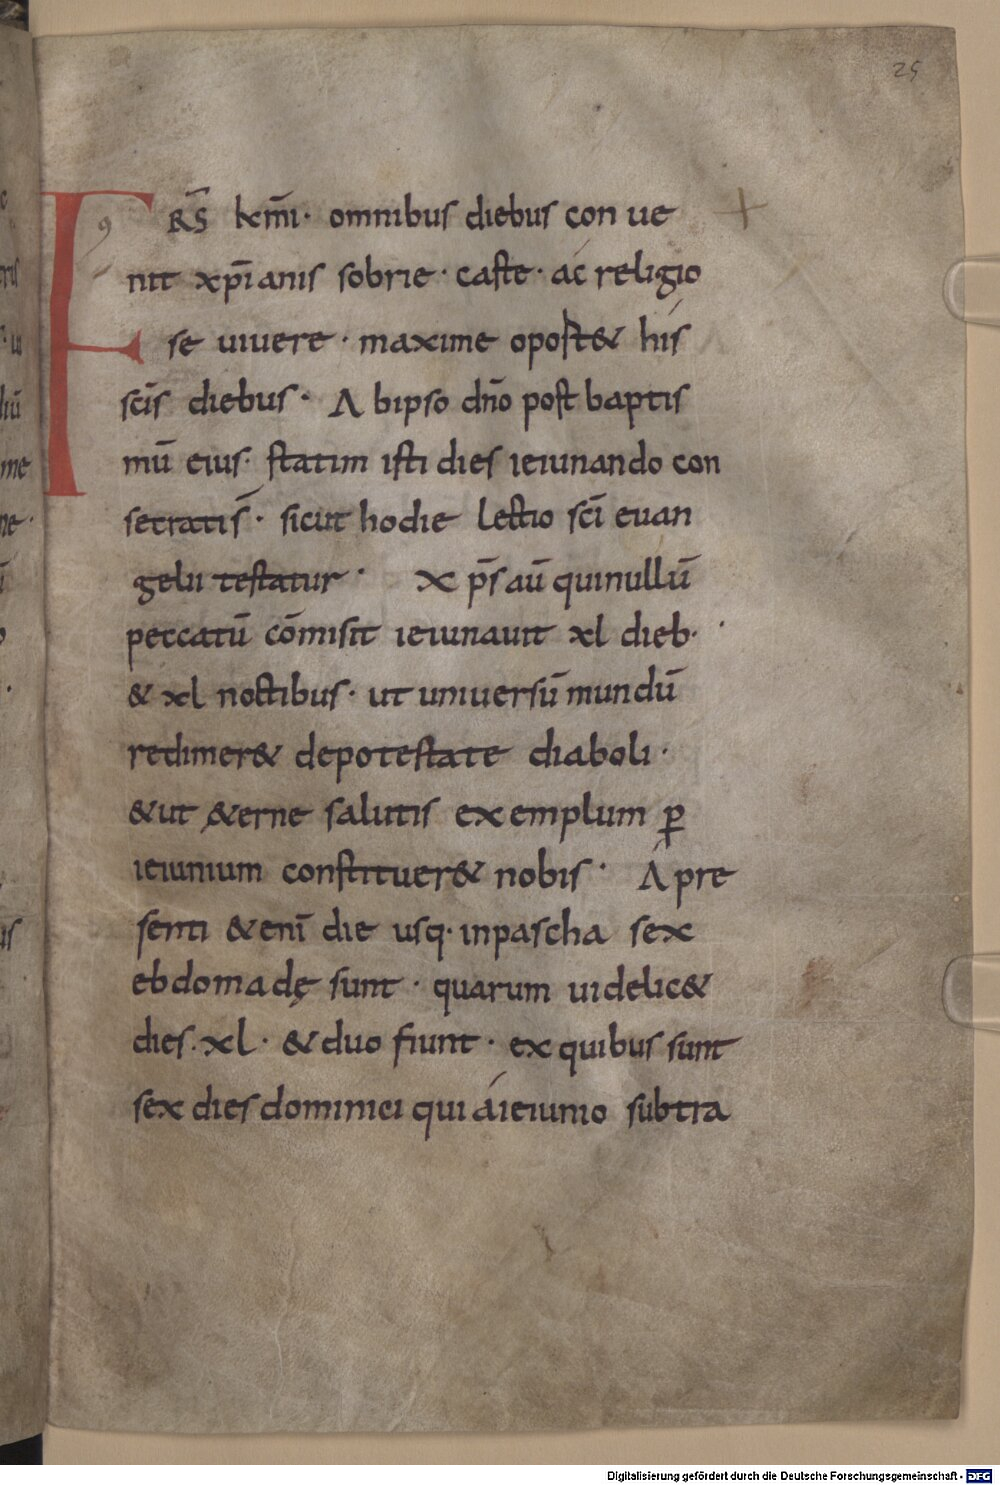 25
FRS km̄i· omnibus diebus con ue
nit xp̄ianis sobrie· caste· ac religio
se uiuere· maxime oport& his
sc̄is diebus· A bipso dn̄o post baptis
mū eius· statim isti dies ieiunando con
secratis· sicut hodie lectio sc̄i euan
gelii testatur· Xp̄s aū qui nullū
peccatū cōmisit ieiunauit xl dieb·
& xl noctibus· ut uniuersū mundū
redimer& de potestate diaboli·
&ut &erne salutis exemplum ꝑ
ieiunium constituer& nobis· A pre
senti &enī die usq· in pascha sex
ebdomadę sunt· quarum uidelic&
dies· xl· & duo fiunt· ex quibus sunt
sex dies dominici qui á ieiunio subtra
Digitalisierung gefördert durch die Deutsche Forschungsgemeinschaft - DFG